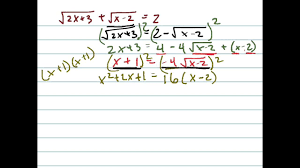 √(2x+3) + √(x-2) = 2
(√(2x+3))² = (2 - √(x-2))²
2x+3 = 4 - 4√(x-2) + (x-2)
(x+1)² = (-4√(x-2))²
(x+1)(x+1)
x²+2x+1 = 16(x-2)